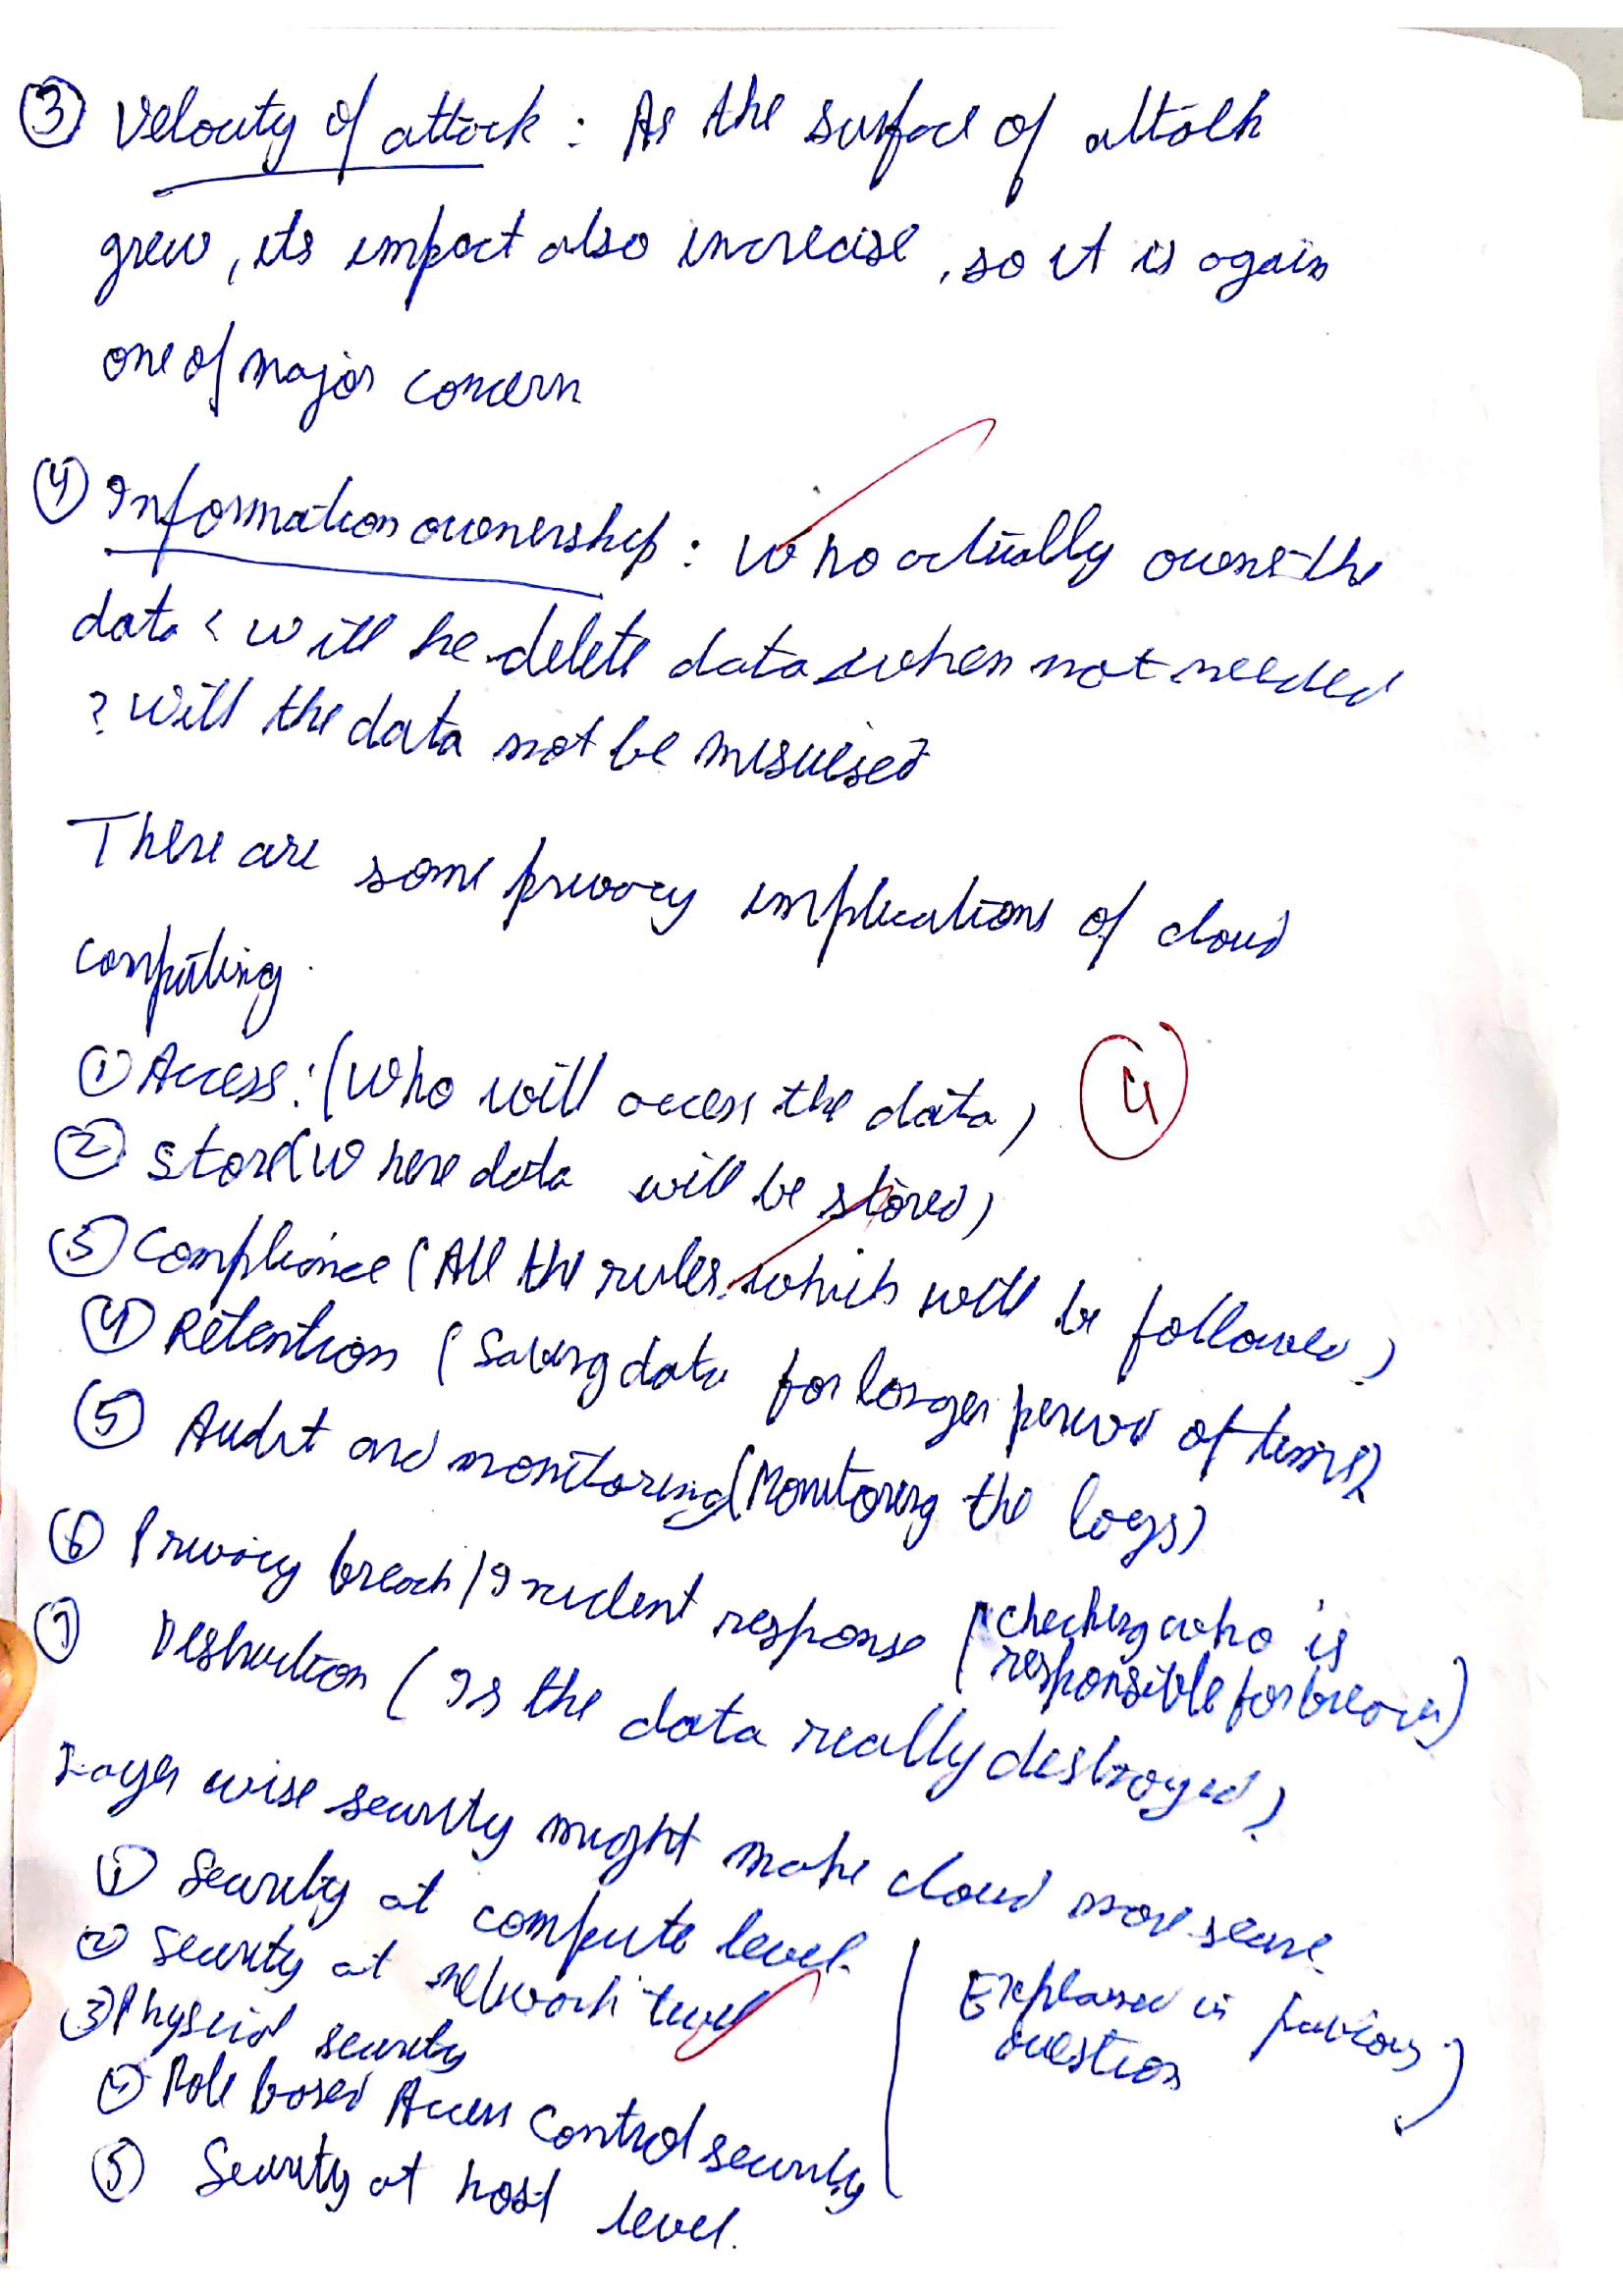 ③ Velocity of attack : As the surface of attack
grew, its impact also increase, so it is again
one of major concern
④ Information ownership : Who actually owns the
data < will he delete data when not needed
? Will the data not be misused
There are some privacy implications of cloud
computing.
① Access : (Who will access the data)
④
② Store (Where data will be stored)
③ Compliance (All the rules which will be followed)
④ Retention (Saving data for longer period of time)
⑤ Audit and monitoring (Monitoring the logs)
⑥ Privacy breach / Incident response (Checking who is
responsible for breach)
⑦ Destruction (Is the data really destroyed)
Layer wise security might make cloud more secure
① Security at compute level.
② Security at network level
③ Physical security
④ Role based Access Control security
⑤ Security at host level.
Explained in previous
question )